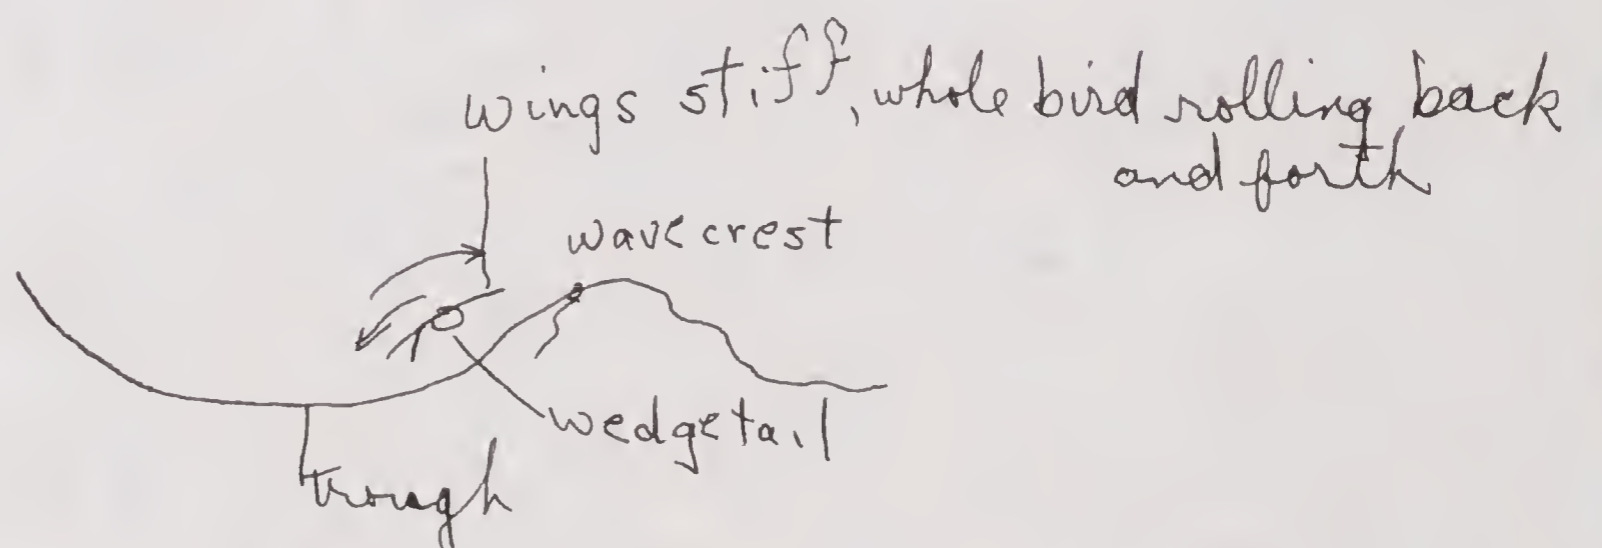 wings stiff, whole bird rolling back
and forth
wave crest
wedgetail
trough